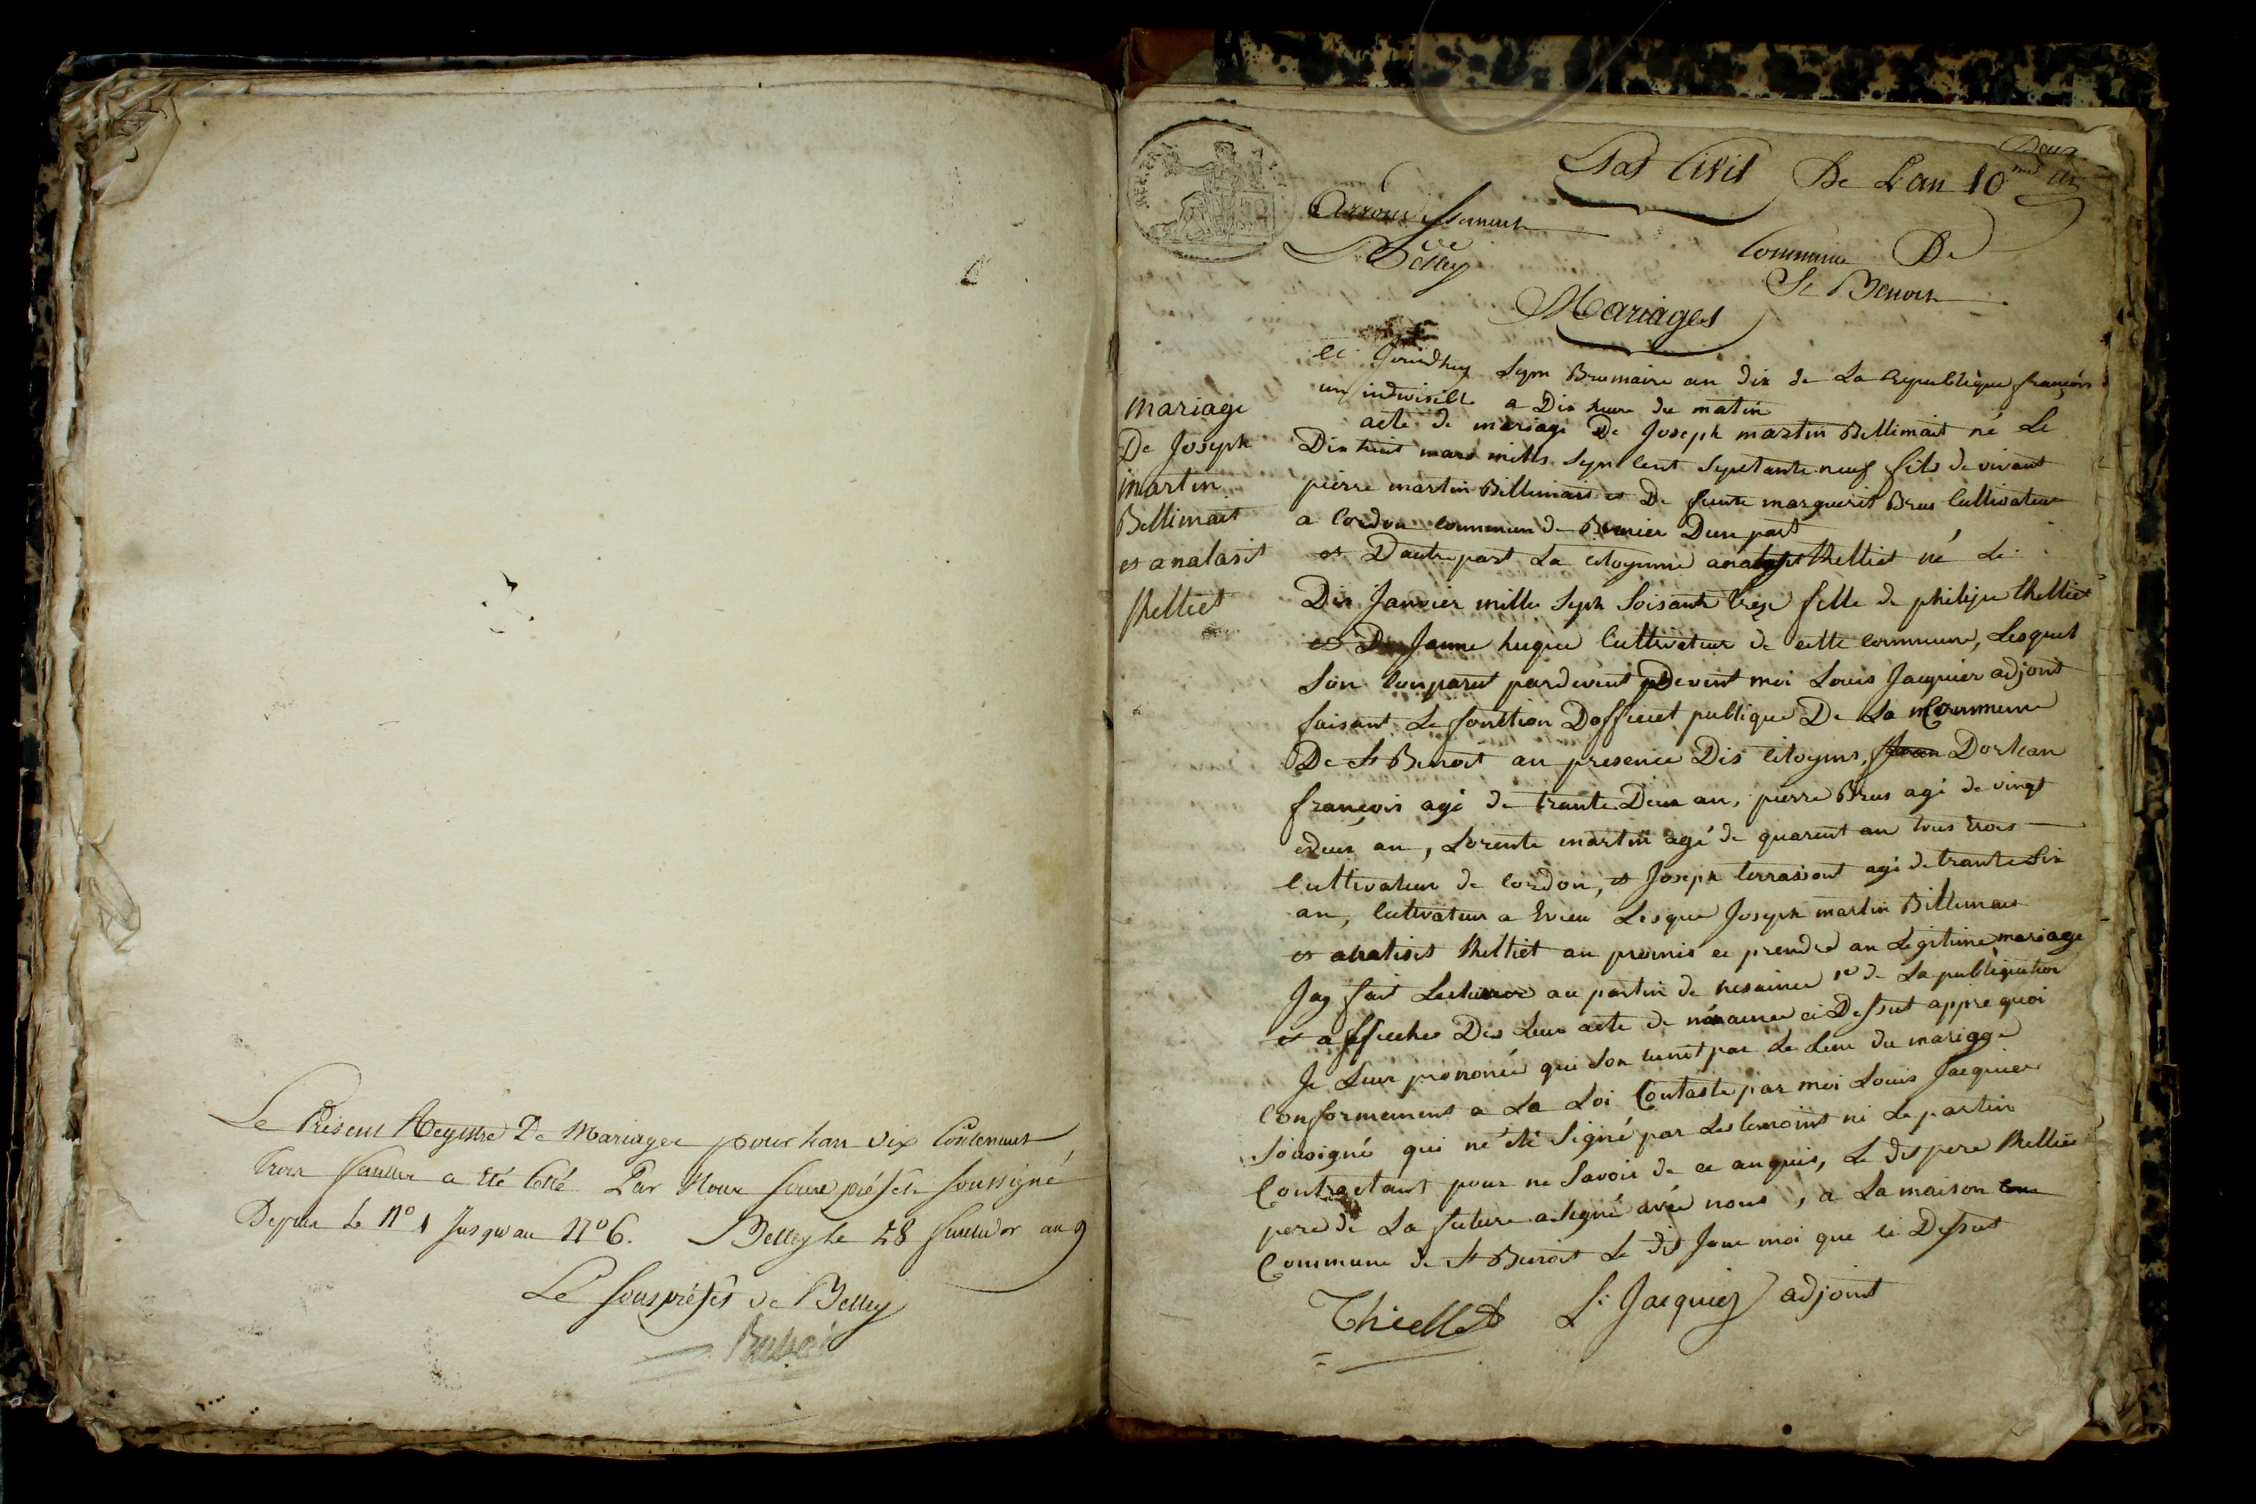 Le Présent Registre De Mariages pour L'an dix Contenant
trois feuilles a été Cotté Par Nous sous préfet soussigné
Depuis le N° 1 Jusqu'au N° 6. Belley le 28 fructidor an 9
Le sous préfet de Belley
Etat Civil De L'an 10
Arrondissement
De
Belley
Commune De
St Benoit
Mariages
mariage
De Joseph
martin
Bellimait
et analasit
thelliet
Le Jourdhuy sept Brumaire an dix de La republique françois
un indivisible a Dix heure du matin
acte de mariage De Joseph martin Bellimait né Le
Dix huit mars mills sept cent septante neuf fils de vivant
pierre martin Billimais et De feute marguerit Brus Cultivateur
a Cordon commune de Brenier Dune part
et Dautre part La citoyenne thelliet né Le
Dix Janvier mille sept soisante treze fille de philipe thelliet
et De Janne hugue Cultivateur de cette commune, Lesquel
son conparut pardevent Devent moi Louis Jacquier adjoint
faisant Le fonction Dofficiet publique De La Commune
De St Benoit au presence Dis Citoyens, Jean Dortean
françois agé de trante Deux an, pierre Brus agé de vingt
edeux an, Lorente martin agé de quarent an tous trois
Cultivateur de Cordon, et Joseph terrassont agé de trante six
an, Cultivateur a Evieu Lesque Joseph martin Billimais
et analisit thelliet au promis ce prendre an Legitime mariage
Jay fait Lecture au partin de nesaince de La publiquation
et affiches Des Leur acte de ci Dessut appre quoi
Je Leur prononcé qui son unit par Le Lien du mariage
Conformement a La Loi Contasté par moi Louis Jacquier
sousigné qui né été signé par Les temoint ni Le partin
Contractant pour ne savoir de ce anquis, Le dit pere thelliet
pere de La future a signé avec nous, a La maison
Commune de St Benoit Le dit Jour moi que ci Dessut
Thiellet L. Jacquier adjoint